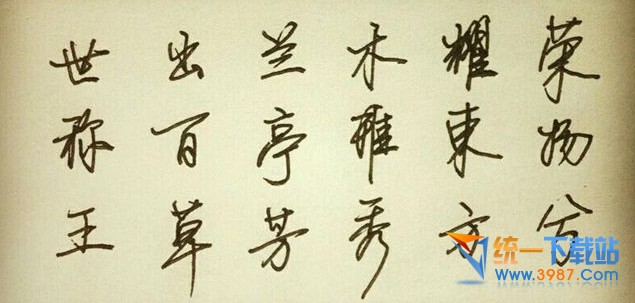 荣扬兮
耀東方
木雅秀
兰亭芳
出百草
世称王
统一下载站
www.3987.com